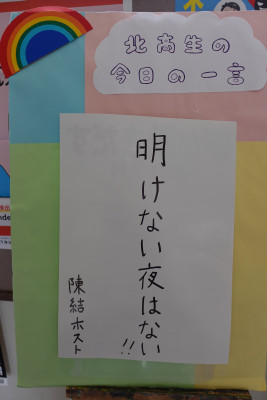 北高生の
今日の一言
明けない夜はない!!
陳結ホスト